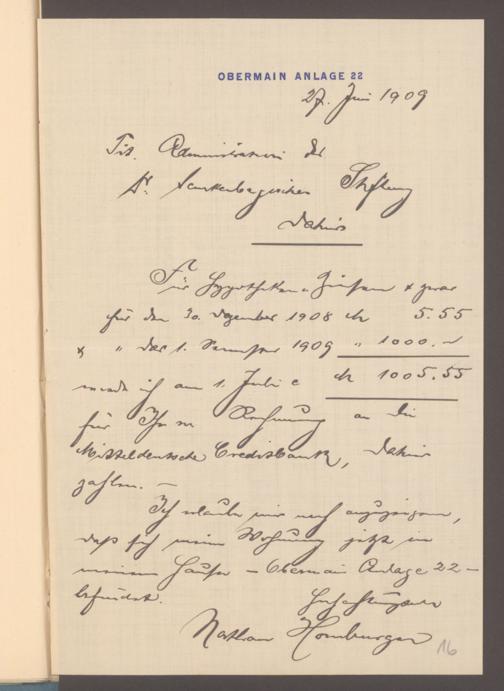 OBERMAIN ANLAGE 22
27. Juni 1909
Tit. Administration der
Dr. Senckenbergischen Stiftung
dahier
Für Hypotheken Zinsen & zwar
für den 30. Dezember 1908 M 5.55
& " das 1. Semester 1909 " 1000.–
werde ich am 1. Juli c M 1005.55
für Ihre Rechnung an die
Mitteldeutsche Creditbank, dahier
zahlen. –
Ich erlaube mir noch anzuzeigen,
daß sich meine Wohnung jetzt in
meinem Hause – Obermain Anlage 22 –
befindet.
Hochachtungsvoll
Nathan Homburger
16